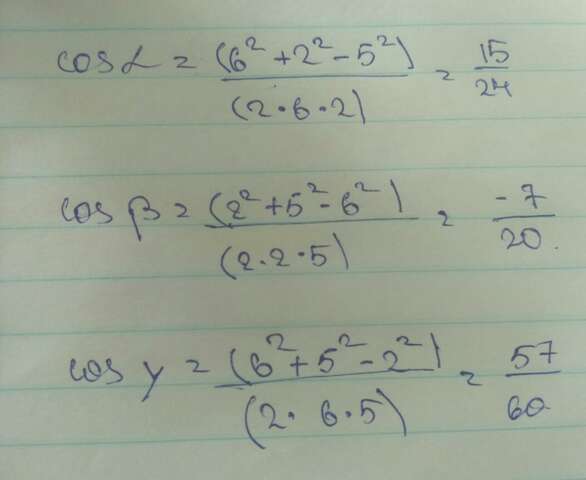 cos α = (6² + 2² - 5²) / (2 · 6 · 2) = 15 / 24
cos β = (2² + 5² - 6²) / (2 · 2 · 5) = -7 / 20.
cos γ = (6² + 5² - 2²) / (2 · 6 · 5) = 57 / 60